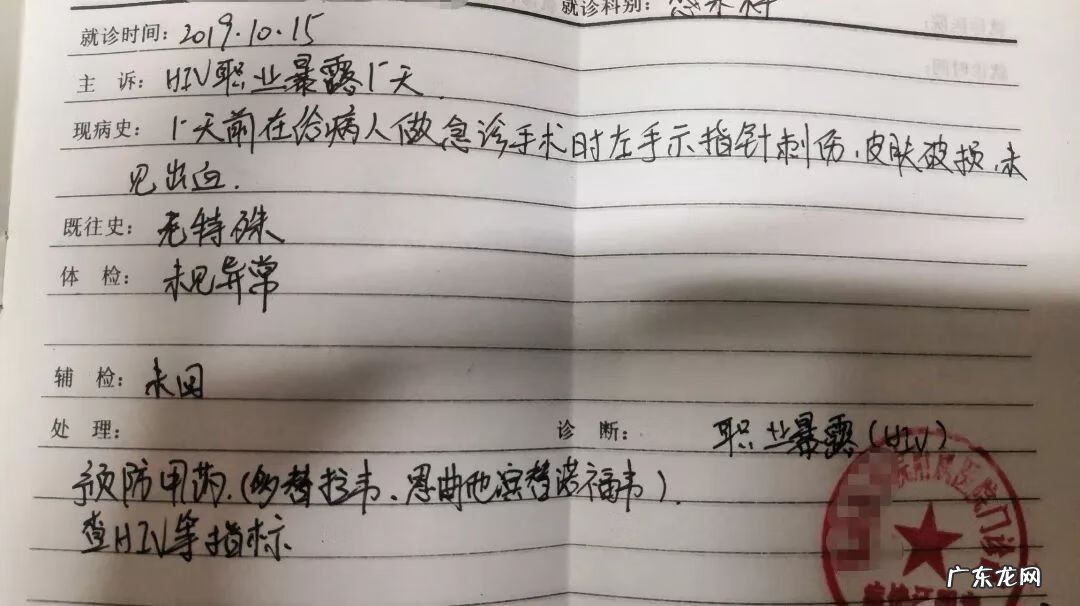 就诊科别：感染科
就诊时间：2019.10.15
主 诉：HIV职业暴露1天
现病史：1天前在给病人做急诊手术时左手示指针刺伤，皮肤破损，未
见出血.
既往史：无特殊
体 检：未见异常
辅 检：未回
处 理：
诊 断：职业暴露（HIV）
预防用药.（多替拉韦、恩曲他滨替诺福韦）.
查HIV等指标
附属医院门诊
广东龙网